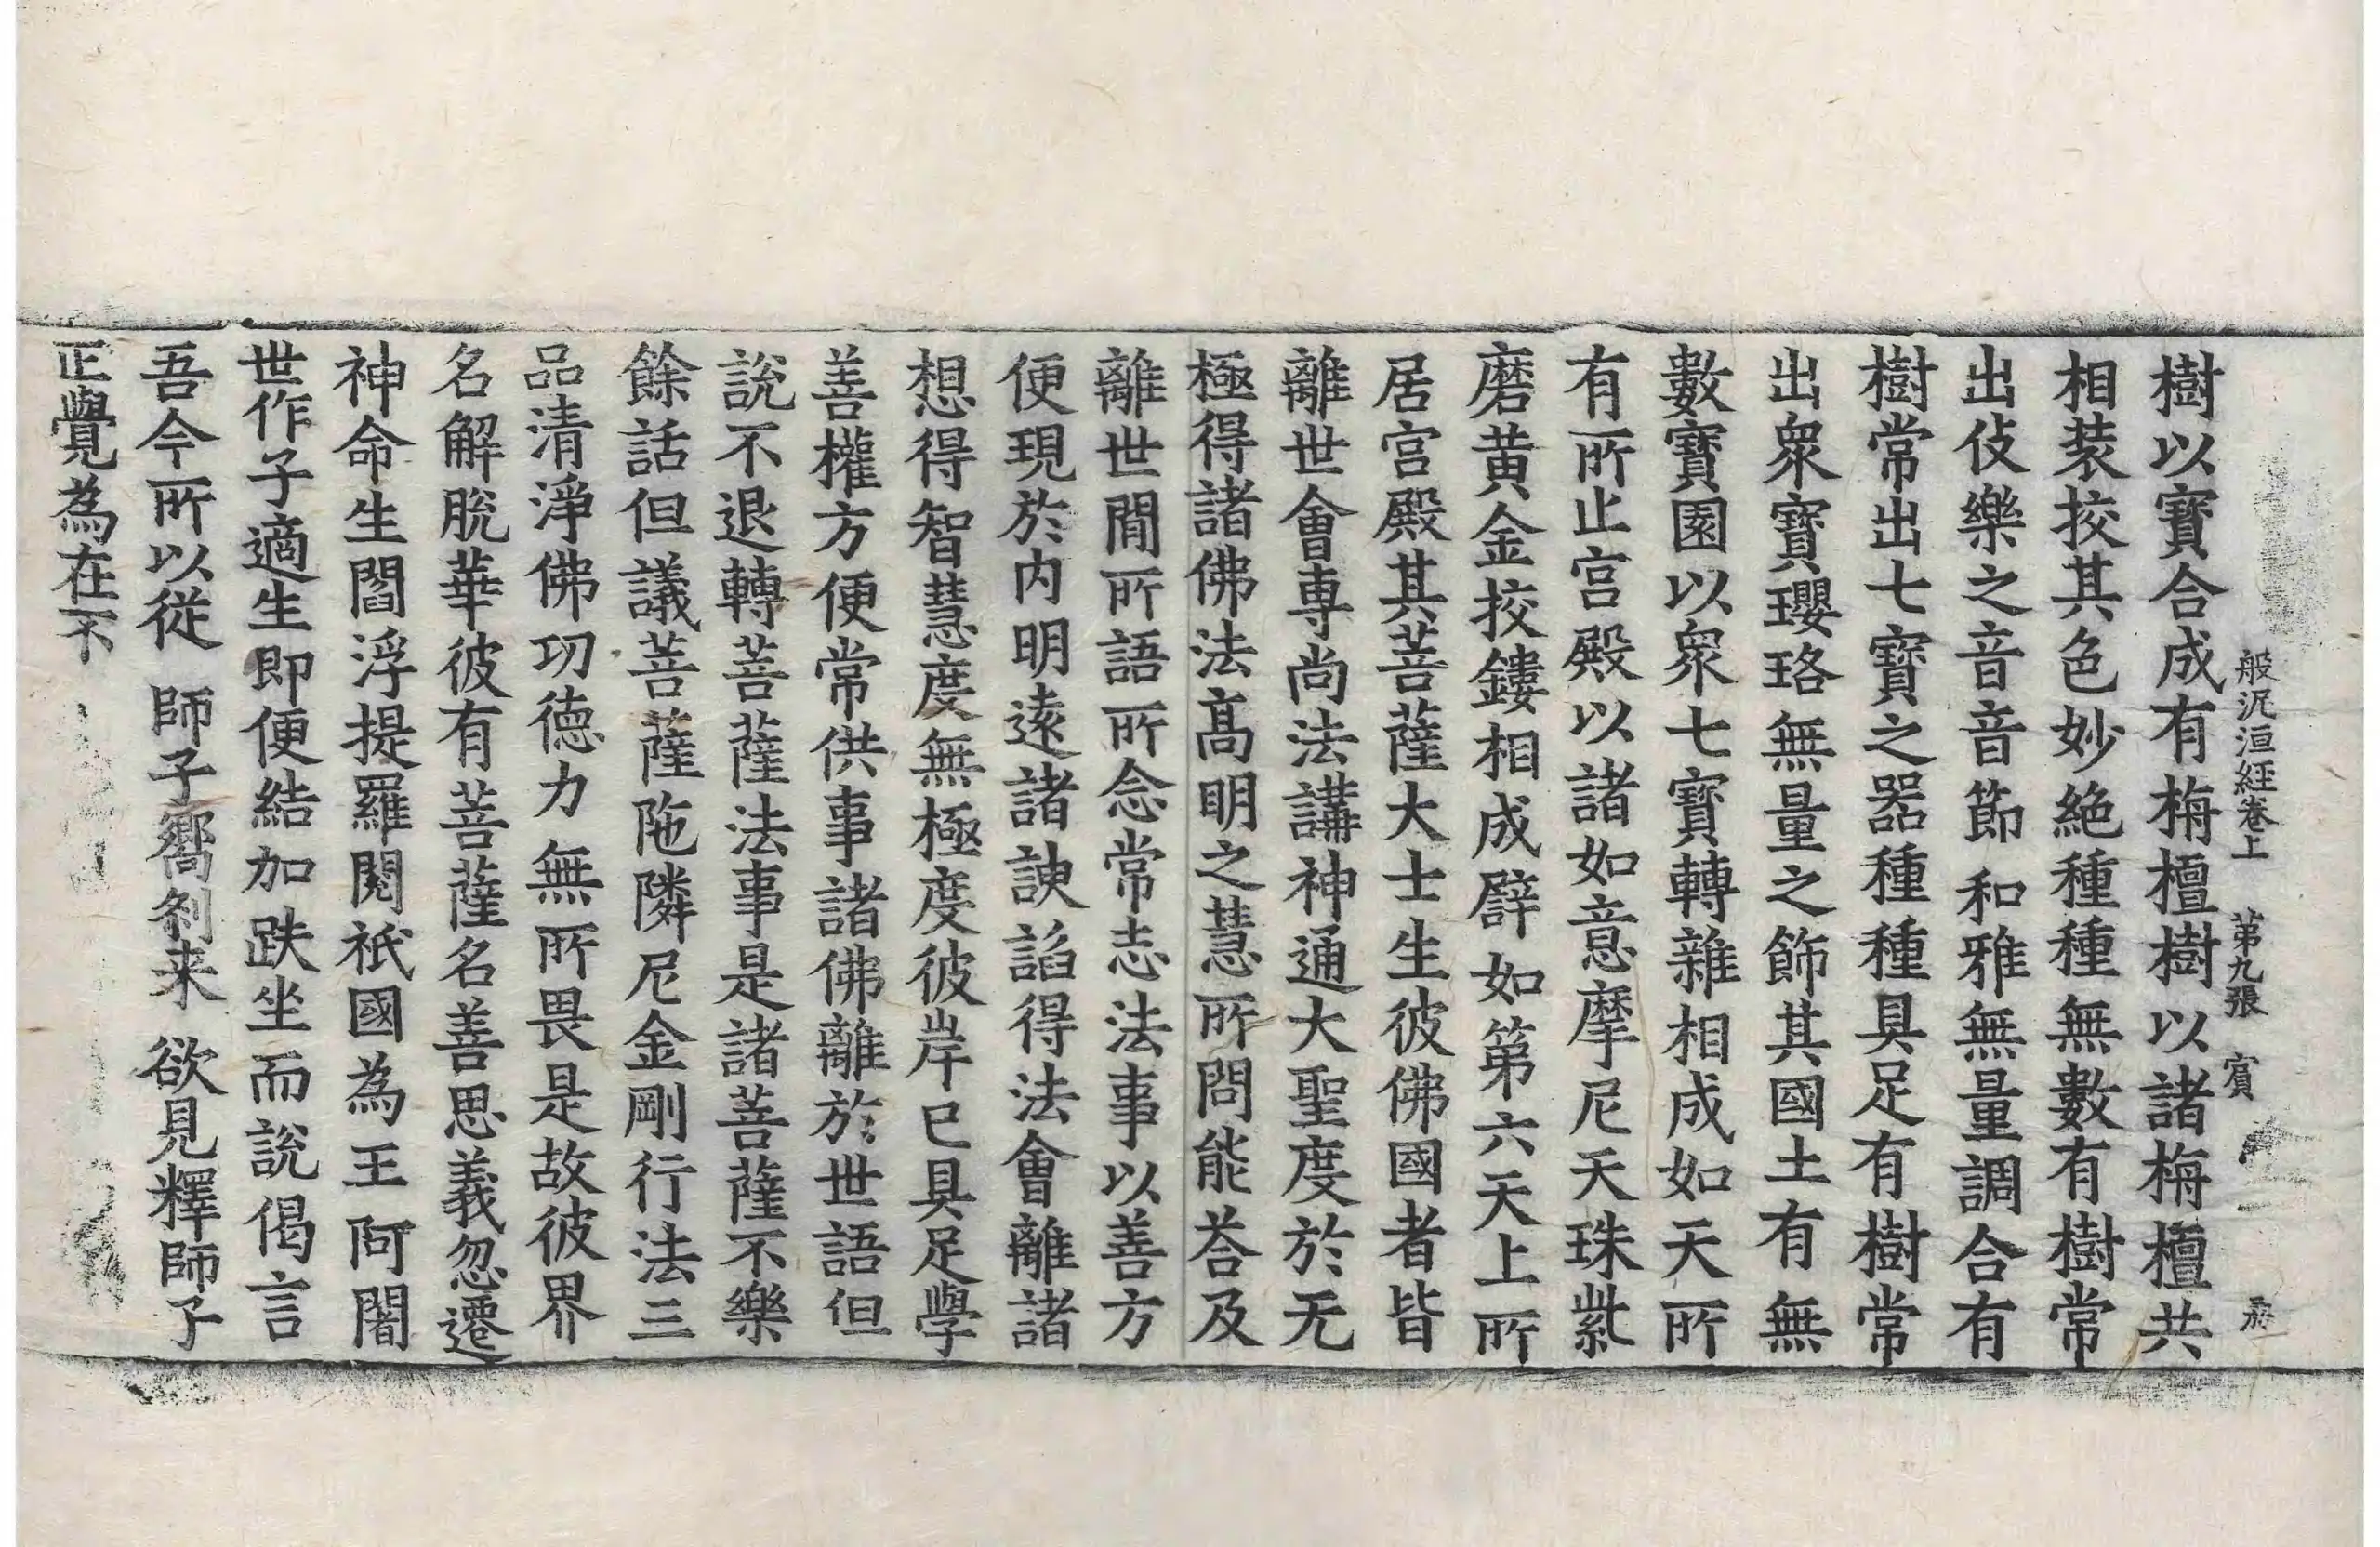 般泥洹經卷上 第九張 賓
樹以寶合成有栴檀樹以諸栴檀共
相裝挍其色妙絶種種無數有樹常
出伎樂之音音節和雅無量調合有
樹常出七寶之器種種具足有樹常
出衆寶瓔珞無量之飾其國土有無
數寶園以衆七寶轉雜相成如天所
有所止宫殿以諸如意摩尼天珠紫
磨黄金挍鏤相成譬如第六天上所
居宫殿其菩薩大士生彼佛國者皆
離世會專尚法講神通大聖度於无
極得諸佛法髙明之慧所問能荅及
離世間所語所念常志法事以善方
便現於内明遠諸諛諂得法會離諸
想得智慧度無極度彼岸已具足學
善權方便常供事諸佛離於世語但
說不退轉菩薩法事是諸菩薩不樂
餘話但議菩薩陁隣尼金剛行法三
品清淨佛功德力無所畏是故彼界
名解脫華彼有菩薩名善思義忽遷
神命生閻浮提羅閱祇國為王阿闍
世作子適生即便結加趺坐而說偈言
吾今所以從 師子嚮剎来 欲見釋師子
正覺為在不